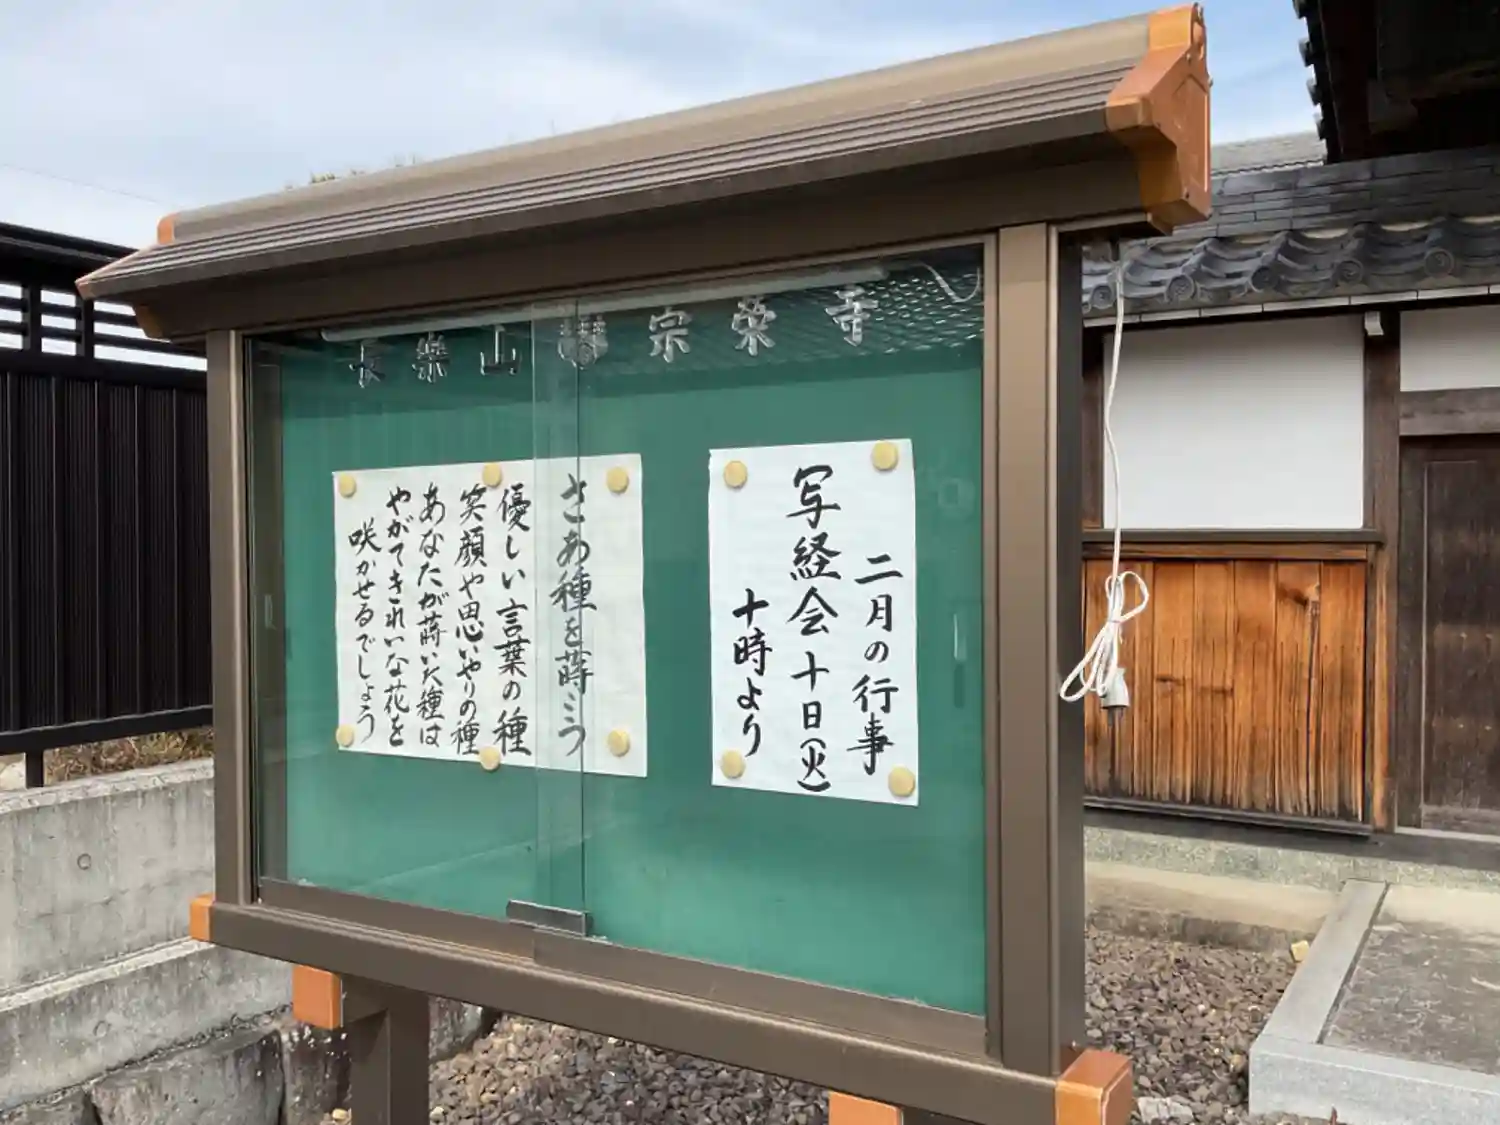 長樂山
宗榮寺
二月の行事
写経会十日(火)
十時より
さあ種を蒔こう
優しい言葉の種
笑顔や思いやりの種
あなたが蒔いた種は
やがてきれいな花を
咲かせるでしょう